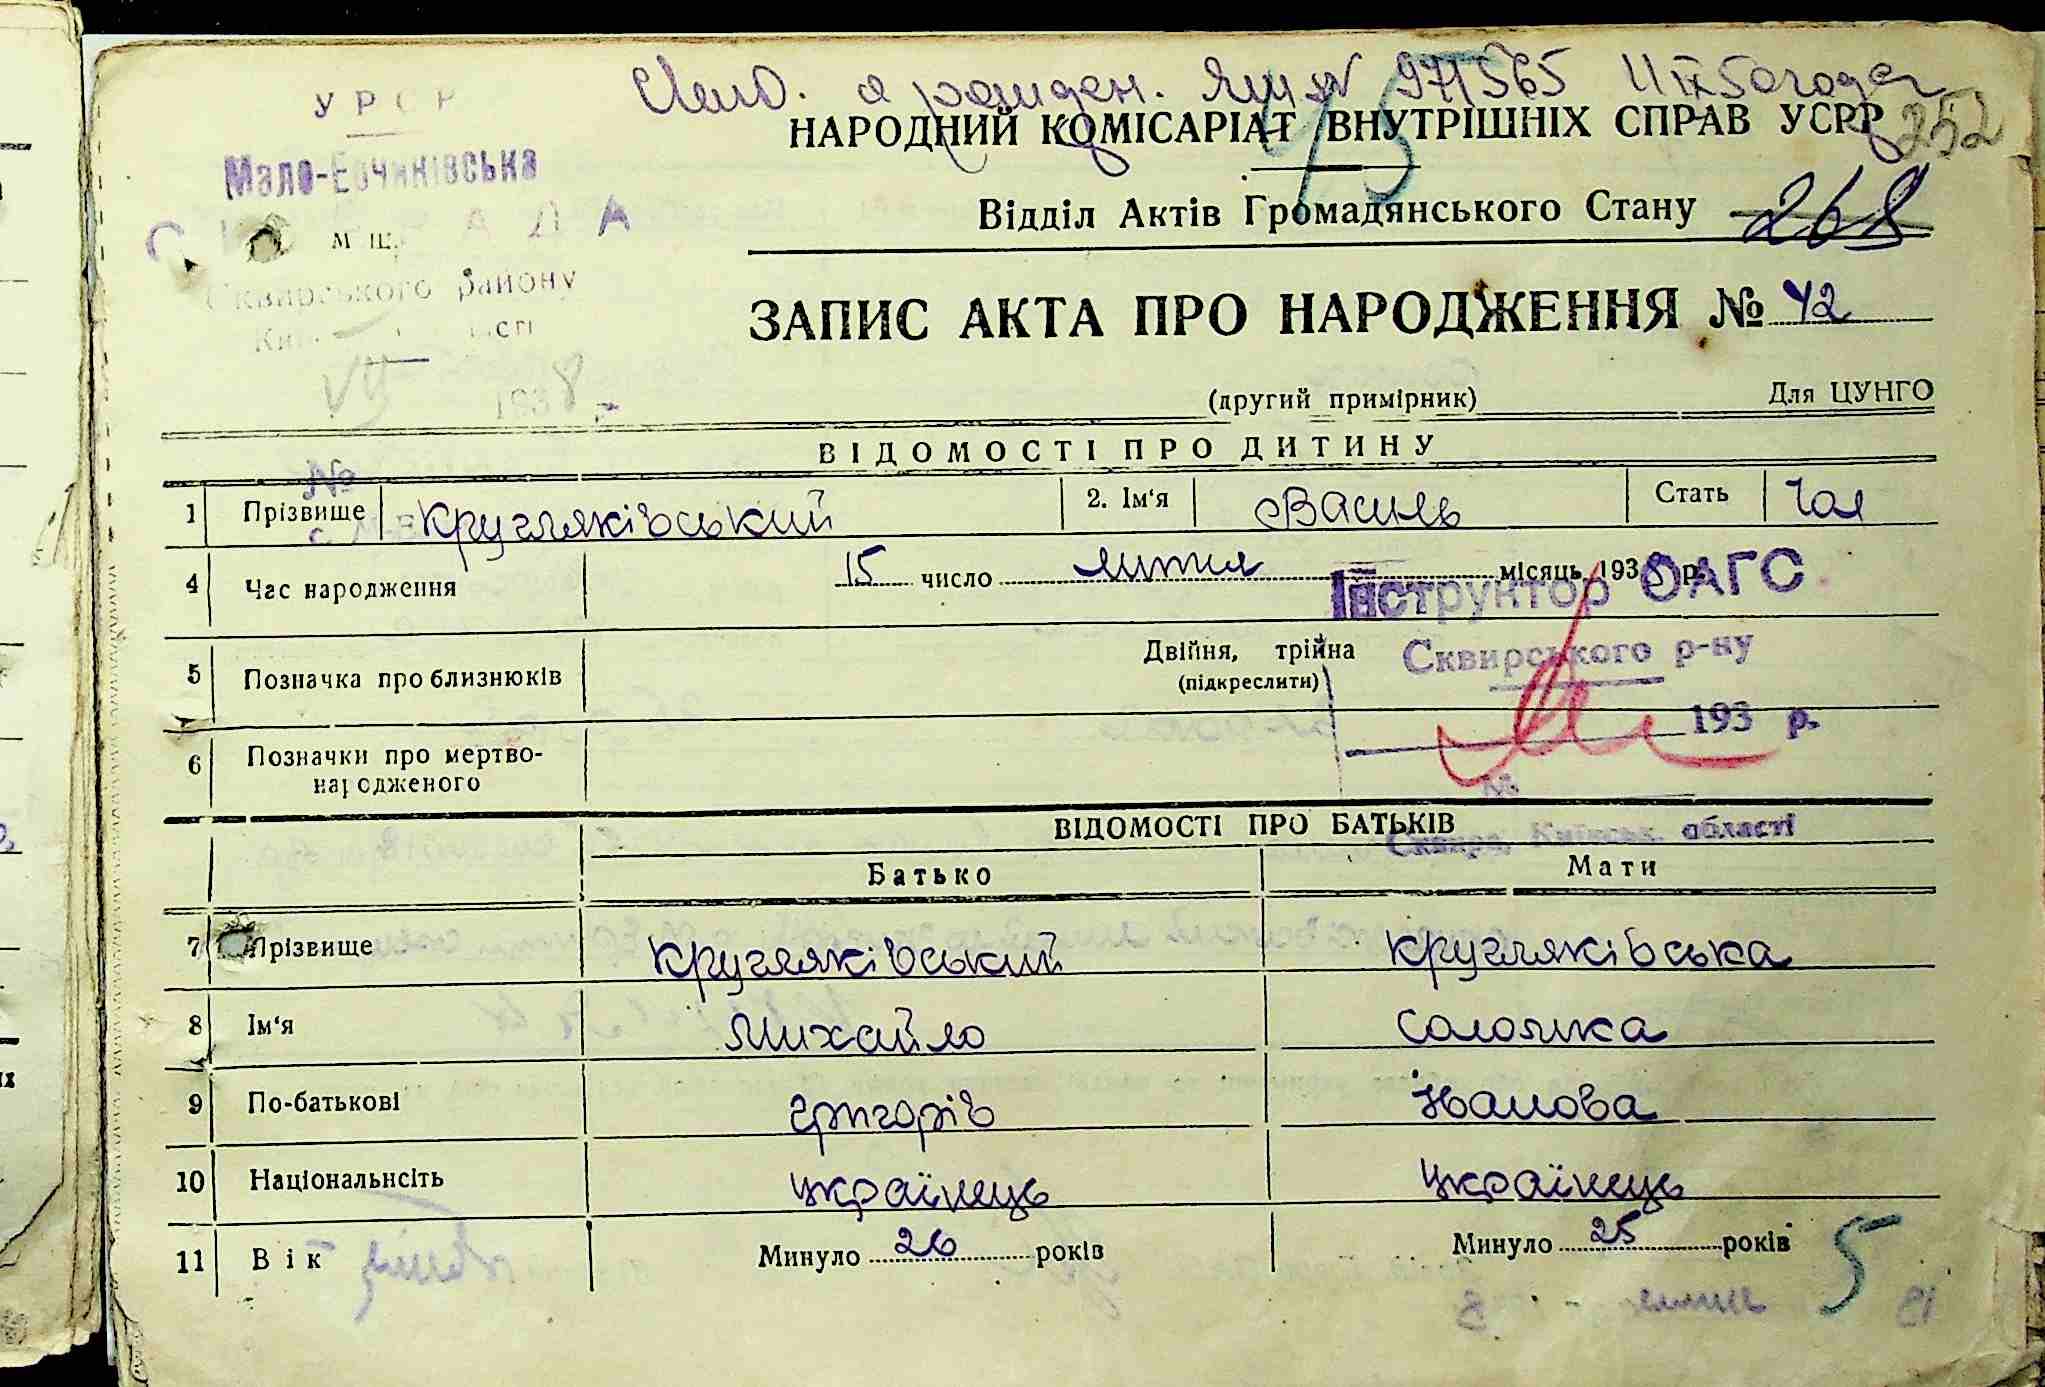 УРСР
Мало-Єрчиківська
СІЛЬРАДА
Сквирського району
193 8 р.
№
НАРОДНИЙ КОМІСАРІАТ ВНУТРІШНІХ СПРАВ УСРР
252
45
Відділ Актів Громадянського Стану
268
ЗАПИС АКТА ПРО НАРОДЖЕННЯ № 42
(другий примірник)
Для ЦУНГО
ВІДОМОСТІ ПРО ДИТИНУ
1 Прізвище Кругляківський 2. Ім'я Василь Стать Чол
4 Час народження 15 число липня місяць 1938 р.
Інструктор ОАГС
Сквирського р-ну
5 Позначка про близнюків Двійня, трійна
(підкреслити)
193 р.
6 Позначки про мертво-
народженого
№
ВІДОМОСТІ ПРО БАТЬКІВ
Сквира, Київськ. області
Батько Мати
7 Прізвище Кругляківський Кругляківська
8 Ім'я Михайло Соломка
9 По-батькові Григорів Іванова
10 Національнсіть Українець Українець
11 Вік Минуло 26 років Минуло 25 років
5